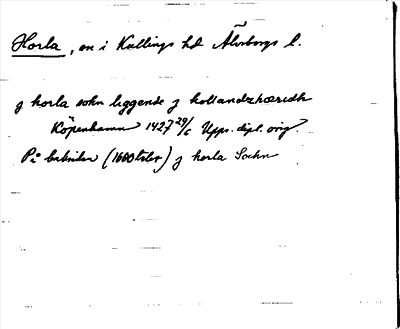 Horla, en i Kullings hd Älvsborgs l.
j horla sokn liggende j kollandzhæridh
Köpenhamn 1427 29/6 Upps. dipl. orig.
På baksidan (1600talet) j horla Sochn